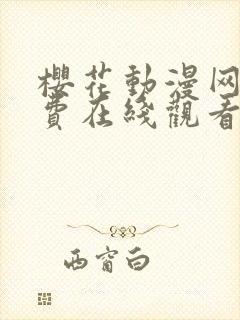 櫻花動漫网
費在綫觀看
西窗白